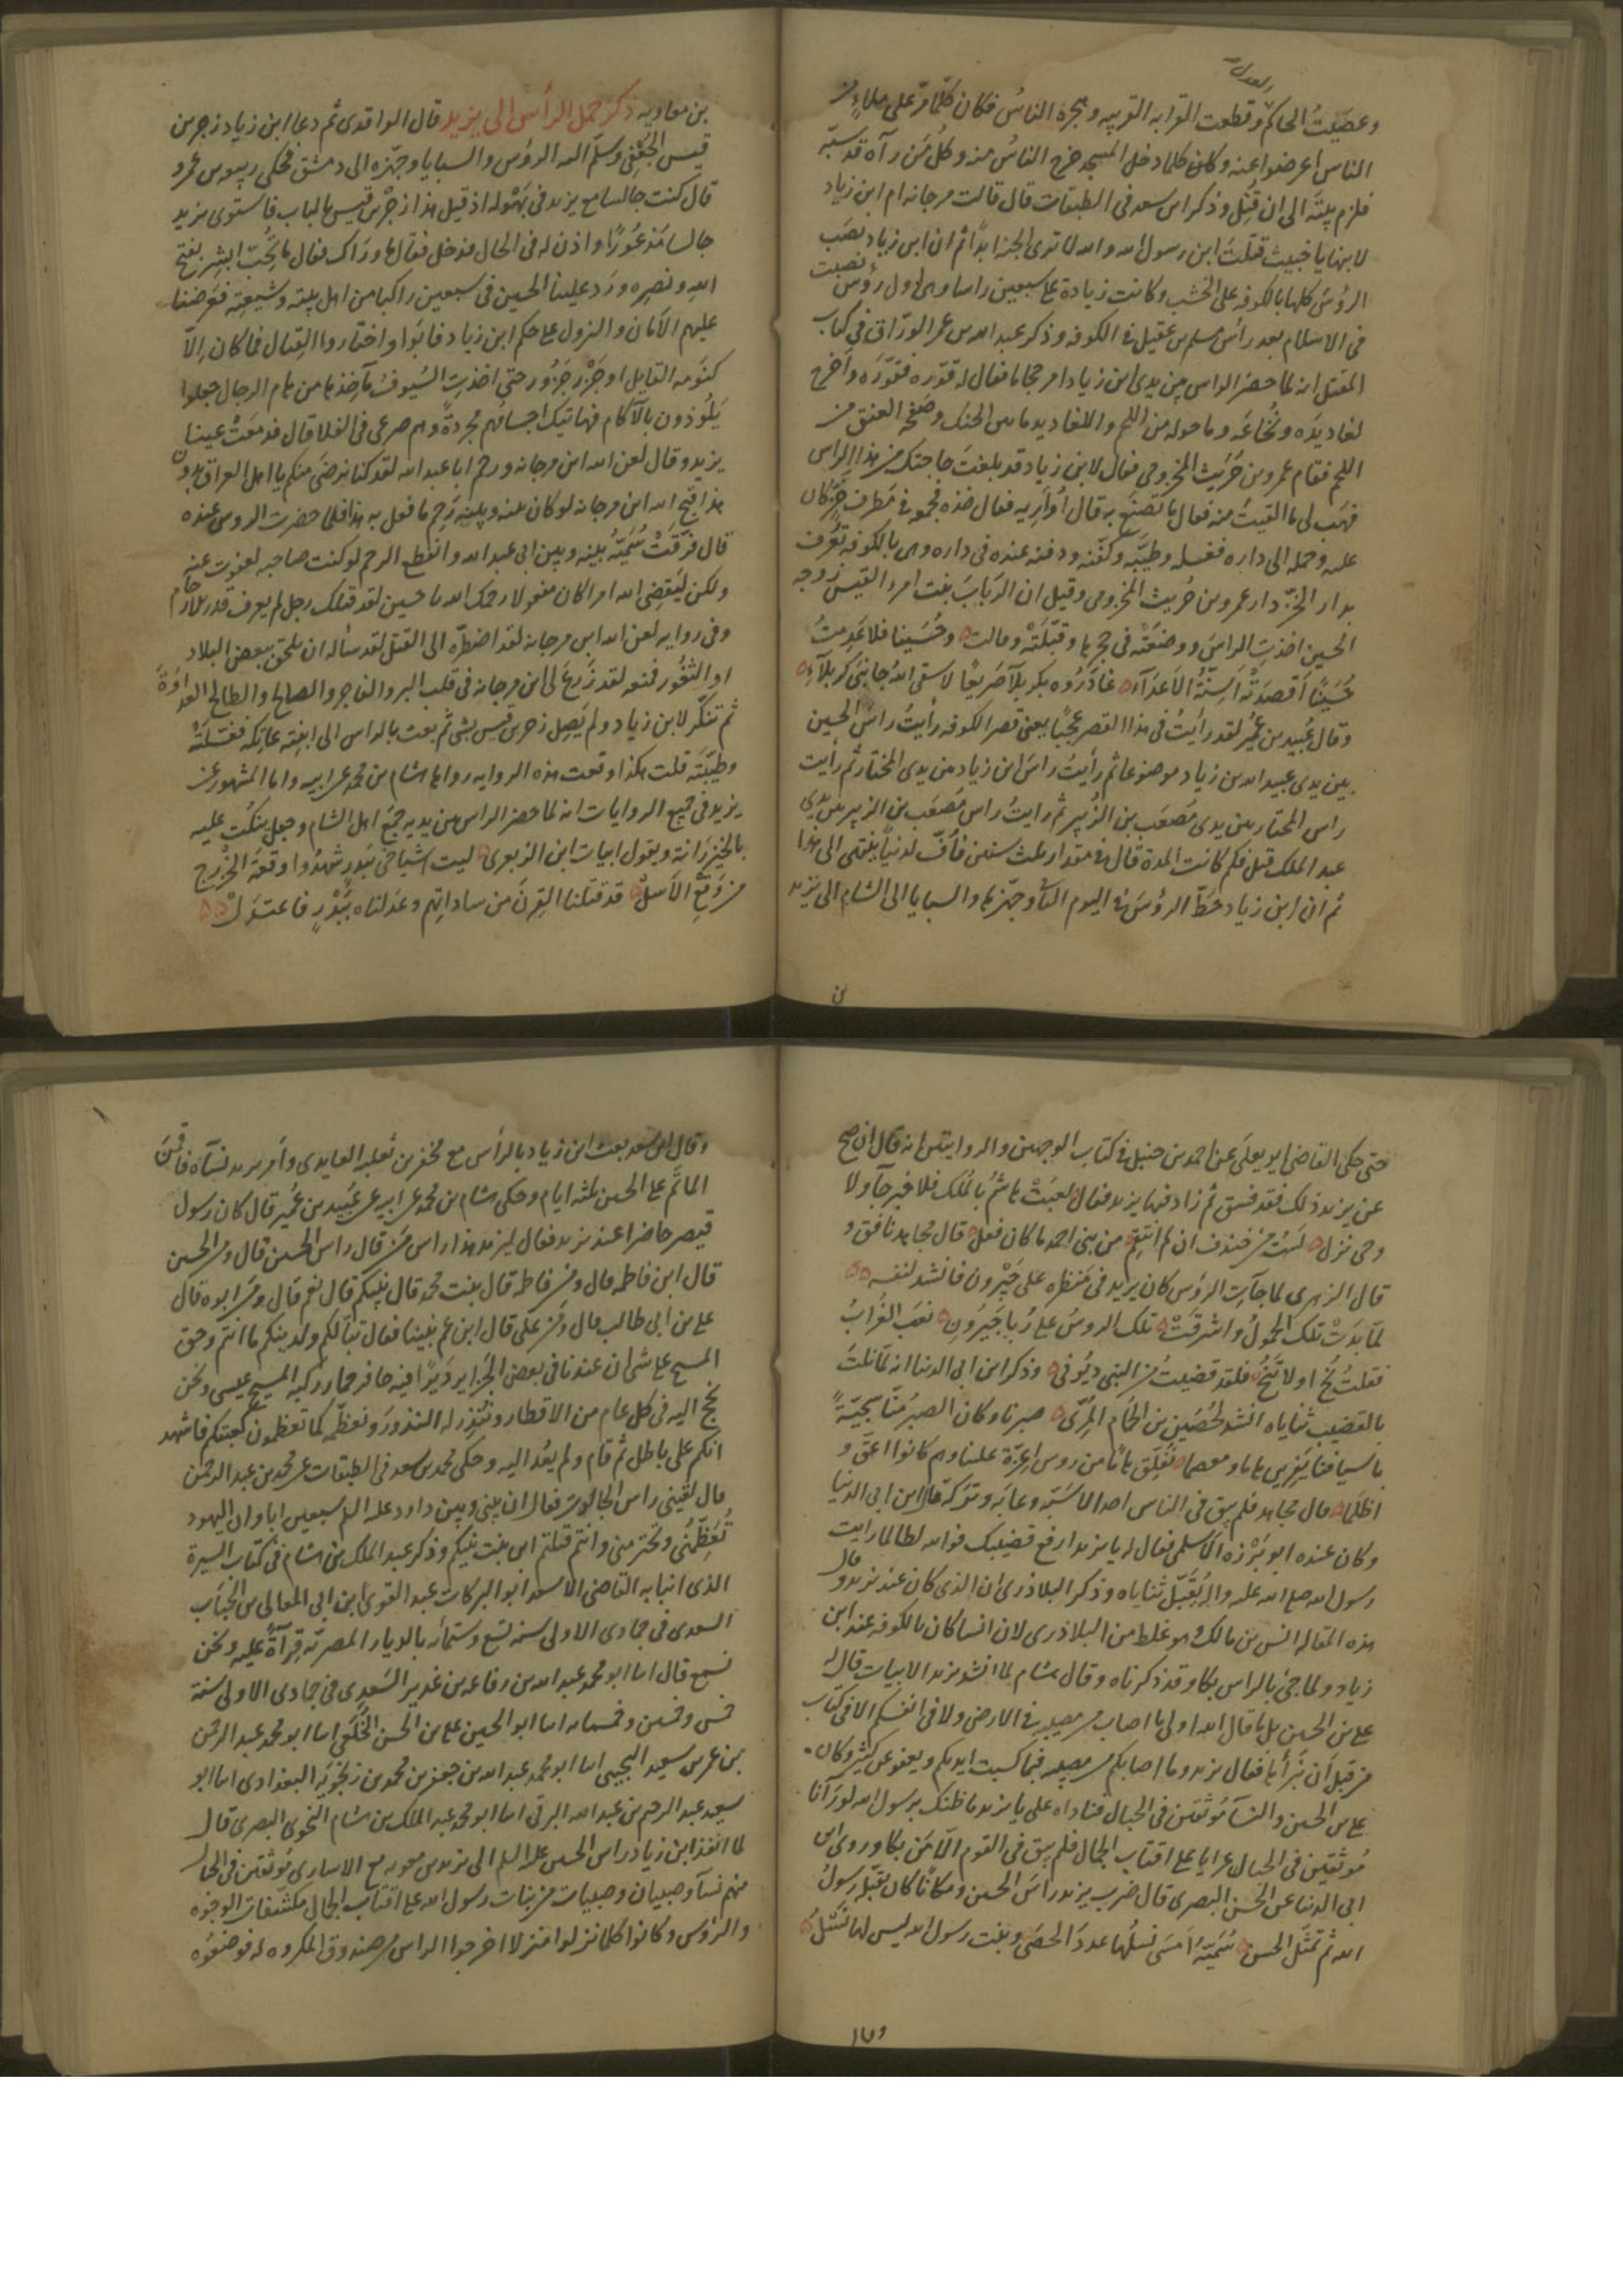 العدل
وعصيتُ الحاكم وقطعت القرابه القريبه وهجره الناسُ فكان كلّما مرّ على ملاءٍ من
الناس اعرضوا عنه وكان كلما دخل المسجد خرج الناسُ منه وكل مَن رآه قد سبّه
فلزم بيتَه الى ان قُتِل وذكر ابن سعد فى الطبقات قال قالت مرجانه ام ابن زياد
لابنها يا خبيث قتلتَ ابن رسول الله والله لا ترى الجنه ابداً ثم ان ابن زياد نصَب
الرؤسَ كلها بالكوفه على الخشب وكانت زيادة على سبعين راسا وهى اول رؤس نُصبت
فى الاسلام بعد رأس مسلم بن عقيل فى الكوفه وذكر عبد الله بن عمر الورّاق فى كتاب
المقتل انه لما حضر الراس بين يدى ابن زياد امر حجاما فقال له قوّره فقوّرَه واَخرج
لغاديدَه ونُخاعَه وما حوله من اللحم واللغاديد ما بين الحنك وصَفحهِ العنق من
اللحم فقام عمرو بن حَرَيث المخزومى فقال لابن زياد قد بلغتَ حاجتك من هذا الراس
فهَب لى ما القيتَ منه فقال ما تصنَع به قال اُواريه فقال خذه فجمعه فى مَطرفِ خزّ كان
عليه وحمله الى داره فغسله وطيّبه وكفّنه ودفنه عنده فى داره وهى بالكوفه تُعرف
بدار الخزّ دار عمرو بن حُريث المخزومى وقيل ان الرَبابَ بنت امرء القيس زوجه
الحسين اخذتِ الراسَ ووضعَتْه فى حجرها وقبّلَتْه وقالت وحُسَينا فلا عَدِمتُ
حُسَينًا اَقصدَتْهُ اَسِنَّةُ الاَعدَآءِ غادَرُوه بكربلآءَ صَريعًا لا سقى اللهُ جانِبَى كربلآءِ
وقال عُبَيد بن عُمَير لقد رأيتُ فى هذا القصر عجبًا يعنى قصر الكوفه رأيتُ راسَ الحسين
بين يدى عبيد الله بن زياد موضوعا ثم رأيتُ راسَ ابن زياد بين يدى المختار ثم رأيت
راس المختار بين يدى مُصعَب بن الزُبير ثم رايتُ راس مُصعَب بن الزبير بين يدى
عبد الملك قيل فكم كانت المدة قال فى مقدار ثلث سنين فاُفّ لدنيا ينتهى الى هذا
ثم ان ابن زياد حَطّ الرؤسَ فى اليوم الثانى وجهّزها والسبايا الى الشام الى يزيد
بن
بن معاويه ذكر حمل الرأس الى يزيد قال الواقدى ثم دعا ابن زياد زجر بن
قيس الجُعْفِى وسلّم اليه الرؤس والسبايا وجهّزه الى دمشق فحكى ربيعه بن عمرو
قال كنت جالسا مع يزيد فى بَهْوٍ له اذ قيل هذا زجر بن قيس بالباب فاستوى يزيد
جالسا مَذعُورًا واذن له فى الحال فدخل فقال ما وَرَاك فقال ما تُحِبّ ابشِر بفتح
اللهِ ونصرِه ورَد علينا الحسين فى سبعين راكبا من اهل بيته وشيعتِه فعَرضنا
عليهم الاَمَانَ والنزول على حكم ابن زياد فابَوْا واختَاروا القِتال فما كان اِلّا
كنَومه القايل او جَزْر جَزُور حتى اخذتِ السُيوفُ مآخِذها من هام الرجال جعلوا
يَلُوذون بالآكام فهاتيك اجسامُهم مجردةً وهم صرعى فى الفلا قال فدمَعَتْ عينا
يزيد وقال لعن الله ابن مرجانه ورحم ابا عبد الله لقد كنا نرضَى منكم يا اهل العراق بدون
هذا قبّح الله ابن مرجانه لو كان بينه وبينه رَحِم ما فعل به هذا فلما حضرت الروس عنده
قال فرّقَتْ سُمَيّةُ بينه وبين ابى عبد الله وانقطع الرحم لو كنت صاحبه لعفوت عنه
ولكن ليَقضِى الله امرا كان مفعولا رحمك الله يا حسين لقد قتلك رجل لم يعرف قدر الارحام
وفى روايه لعن الله ابن مرجانه لقد اضطرّه الى القتل لقد سأله ان يلحق ببعض البلاد
او الثغُور فمنعه لقد زَرَعَ لى ابن مرجانه فى قلب البر والفاجر والصالح والطالح العداوَةَ
ثم تنكّر لابن زياد ولم يَصِل زجر بن قيس بشئ ثم بعث بالراس الى ابنته عاتكه فغسّلَتْه
وطيّبَتَه قلت هكذا وقعت هذه الروايه رواها هشام بن محمد عن ابيه واما المشهور عن
يزيد فى جميع الروايات انه لما حضر الراس بين يديه جمَع اهل الشام وجعل ينكُت عليه
بالخَيزَرانة ويقول ابيات ابن الزبعرى ليت اشياخى ببَدرٍ شهِدُوا وقعَةَ الخزرج
من وَقعِ الاَسلْ قد قتَلنا القِرنَ من ساداتِهم وعَدلناه ببَدْرٍ فاعتَدَلْ
حتى حكى القاضى ابو يعلَى عن احمد بن حنبل فى كتاب الوجهين والروايتين انه قال ان صح
عن يزيد ذلك فقد فسق ثم زاد فيها يزيد فقال لعبَتْ هاشمُ بالمُلك فلا خبر جآء ولا
وحى نزل لَستُ من خندف ان لم انتقم من بنى احمد ما كان فعل قال مجاهد نافق و
قال الزهرى لما جآءت الرؤس كان يزيد فى مَنظره على جَيْرون فانشد لنفسه
لمّا بَدَتْ تلك الحمولُ واشرقَتْ تلك الروسُ على رُبا جَيرُونِ نعَب الغُرابُ
فقلتُ نُحْ او لا تَنُحْ فلقد قضيتُ من النبى ديُونى وذكر ابن ابى الدنيا انه لمّا نكتَ
بالقضيب ثناياه انشد لحُصَين بن الحُمَام المِرّى صبرنا وكان الصبرُ منّا سجيّةً
باسيافنا يَفرِين هاما ومعصما نُفَلّق هامًا من روس اعِزّة علينا وهم كانوا اعقّ و
اظلما قال مجاهد فلم يبق فى الناس احد الا سَبّه وعابَه وتركه قال ابن ابى الدنيا
وكان عنده ابو بَرْزه الاسلمى فقال له يا يزيد ارفع قضيبك فوالله لطالما رايت
رسول الله صلى الله عليه واله يُقَبِّل ثناياه وذكر البلاذرى ان الذى كان عند يزيد وقال
هذه المقاله انس بن مالك وهو غلط من البلاذرى لان انسا كان بالكوفه عند ابن
زياد ولما جئ بالراس بكا وقد ذكرناه وقال هشام لما انشد يزيد الابيات قال له
على بن الحسين بل ما قال الله اولى ما اصاب من مصيبه فى الارض ولا فى انفسكم الا فى كتاب
من قبل اَن نَبراَها فقال يزيد وما اصابكم من مصيبه فبما كسبت ايديكم ويعفو عن كثير وكان
على بن الحسين والنسآء مُوثقين فى الحبال فناداه على يا يزيد ما ظنك برسول الله لو رَآنا
مُوثقين فى الحبال عرايا على اقتاب الجمال فلم يبق فى القوم الّا مَن بكا وروى ابن
ابى الدنيا عن الحسن البصرى قال ضرب يزيد راسَ الحسين ومكانًا كان يقبّله رسولُ
الله ثم تمثّل الحسن سُمَيّةُ اَمسَى نسلُها عددَ الحصَى وبنت رسول الله ليس لها نَسْلُ
وقال
وقال ابن سعد بعث ابن زياد بالرأس مع محفز بن ثعلبه العايدى وأمر يزيد نسآه فاقَمْنَ
الماتَم على الحسين ثلثه ايام وحكى هشام بن محمد عن ابيه عن عُبَيد بن عُمَير قال كان رسول
قيصر حاضرا عند يزيد فقال ليزيد هذا راس مَن قال راس الحسين قال ومن الحسين
قال ابن فاطمه قال ومن فاطمه قال بنت محمد قال نبيّكم قال نعم قال ومن ابوه قال
على بن ابى طالب قال ومَن علىّ قال ابن عم نبينا فقال تبًا لكم ولدينكم ما انتم وحق
المسيح على شئ ان عندنا فى بعض الجَزاير دَيرًا فيه حافر حمار ركبه المسيح عيسى ونحن
نحج اليه فى كل عام من الاقطار وننذِر له النذورَ ونعظّمه كما تعظمون كعبتكم فاشهد
انكم على باطل ثم قام ولم يعُد اليه وحكى محمد بن سعد فى الطبقات عن محمد بن عبد الرحمن
قال لقينى راس الجالوت فقال ان بينى وبين داود عليه السلم سبعين ابا وان اليهود
تُعَظّمُنى وتحترمنى وانتم قتلتم ابن بنت نبيكم وذكر عبد الملك بن هشام فى كتاب السيرة
الذى انبا به القاضى الاسعد ابو البركات عبد القوى ابن ابى المعالى بن الجَبّاب
السعدى فى جمادى الاولى سنه تسع وستمائه بالديار المصريّه قِرآةً عليه ونحن
نسمع قال انا ابو محمد عبد الله بن رفاعه بن غدير السَعدِى فى جمادى الاولى سنة
خمس وخمسين وخمسمائه انا ابو الحسين على بن الحسن الخُلَعى انا ابو محمد عبد الرحمن
بن عمر بن سعيد النجيبى انا ابو محمد عبد الله بن جعفر بن محمد بن زنجُويَه البغدادى انا ابو
سعيد عبد الرحيم بن عبد الله البرقى انا ابو محمد عبد الملك بن هشام النحوى البصرى قال
لما انفذ ابن زياد راس الحسين عليه السلم الى يزيد بن معويه مع الاسارى مُوثقين فى الحبال
منهم نسآء وصبيان وصبيات من بنات رسول الله على اقتاب الجمال مكشّفات الوجُوه
والرُؤس وكانوا كلما نزلوا منزلا اخرجوا الراس من صندوق المكروه له فوضعُوه